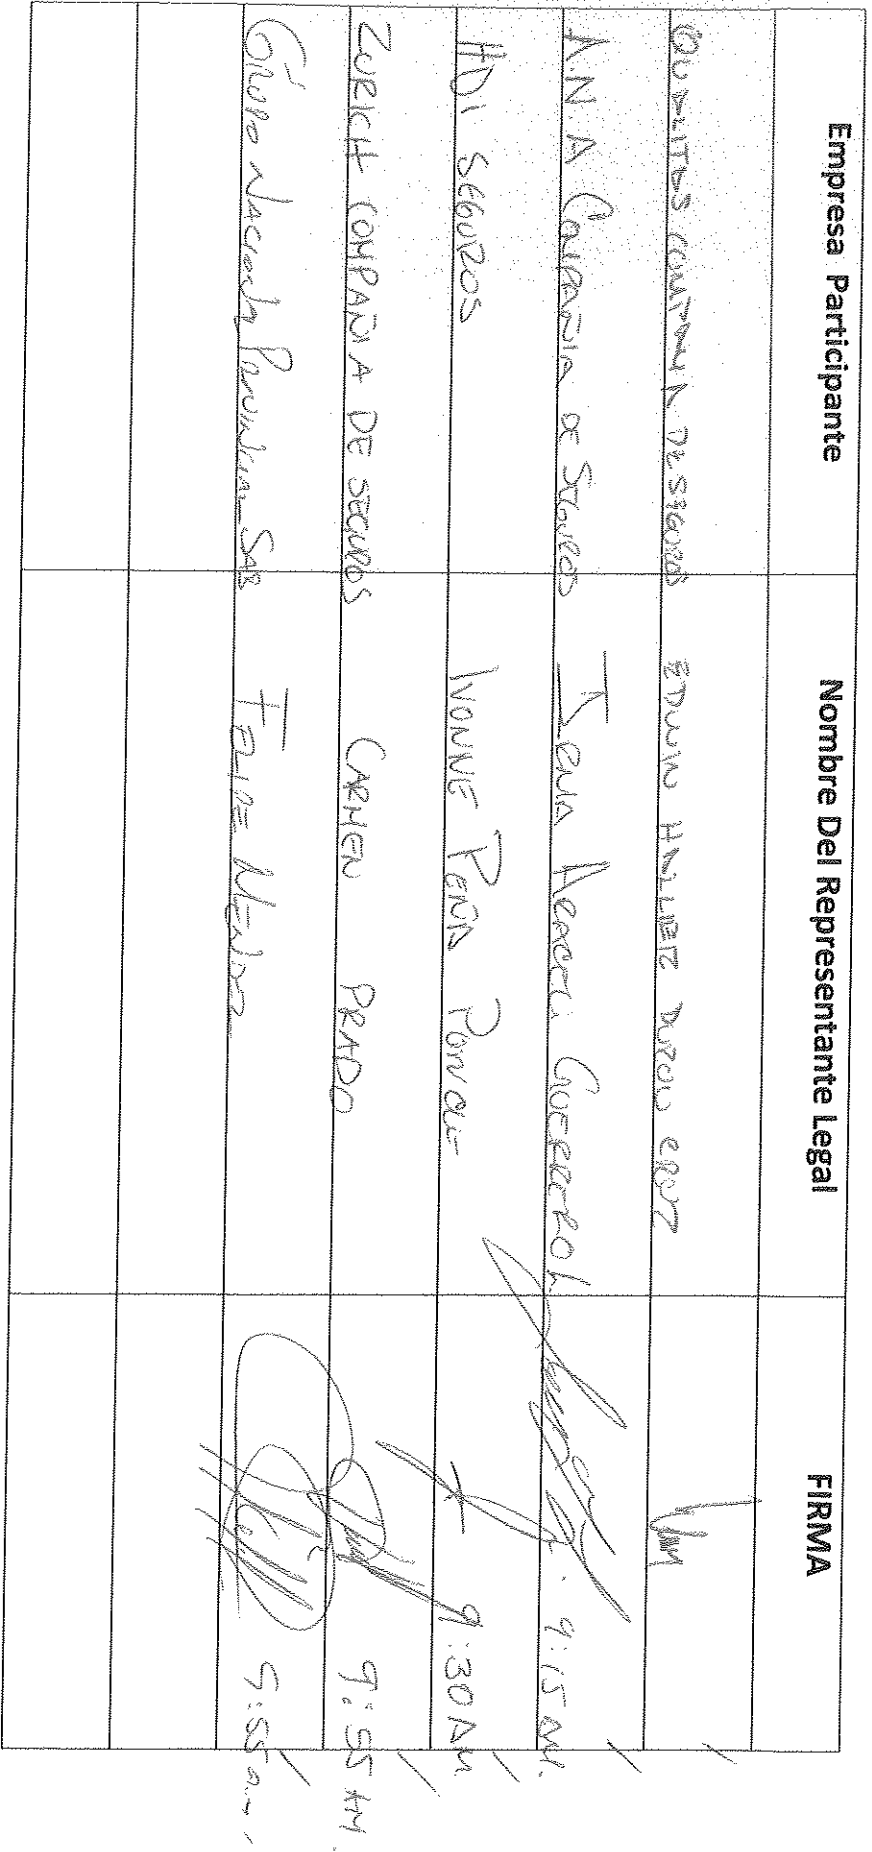 Empresa Participante Nombre Del Representante Legal FIRMA
QUALITAS COMPAÑIA DE SEGUROS EDWIN CRUZ
A.N.A COMPAÑIA DE SEGUROS IRMA ARACELI GUERRERO L. 9:15 AM.
HDI SEGUROS IVONNE PEÑA 9:30 AM
ZURICH COMPAÑIA DE SEGUROS CARMEN PRADO 9:55 AM.
GRUPO NACIONAL PROVINCIAL SAB FELIPE 9:55 a.m.